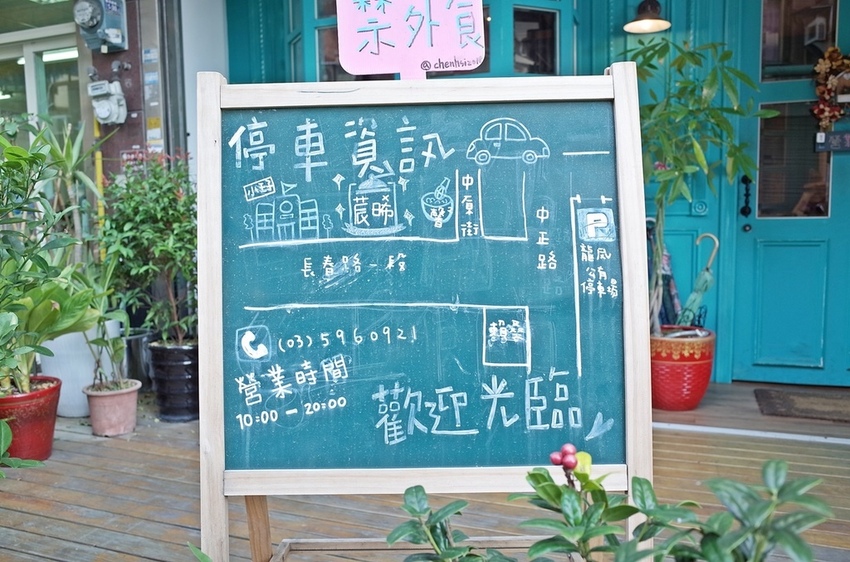 禁外食
@chenhsi2018
停車資訊
小學
農晞
馨
中原街
中正路
P
龍鳳
公有
停車場
長春路一段
(03)5960921
營業時間
10:00 — 20:00
歡迎光臨